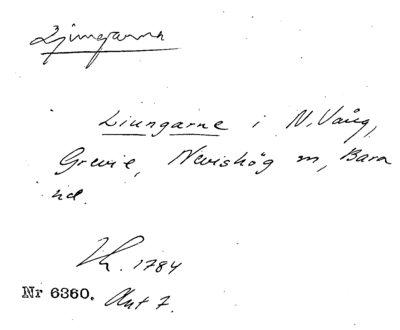 Ljungarna
Liungarne i N. Vång,
Grevie, Nevishög m, Bara
hd.
Th. 1784
Nr 6360. Akt 7.